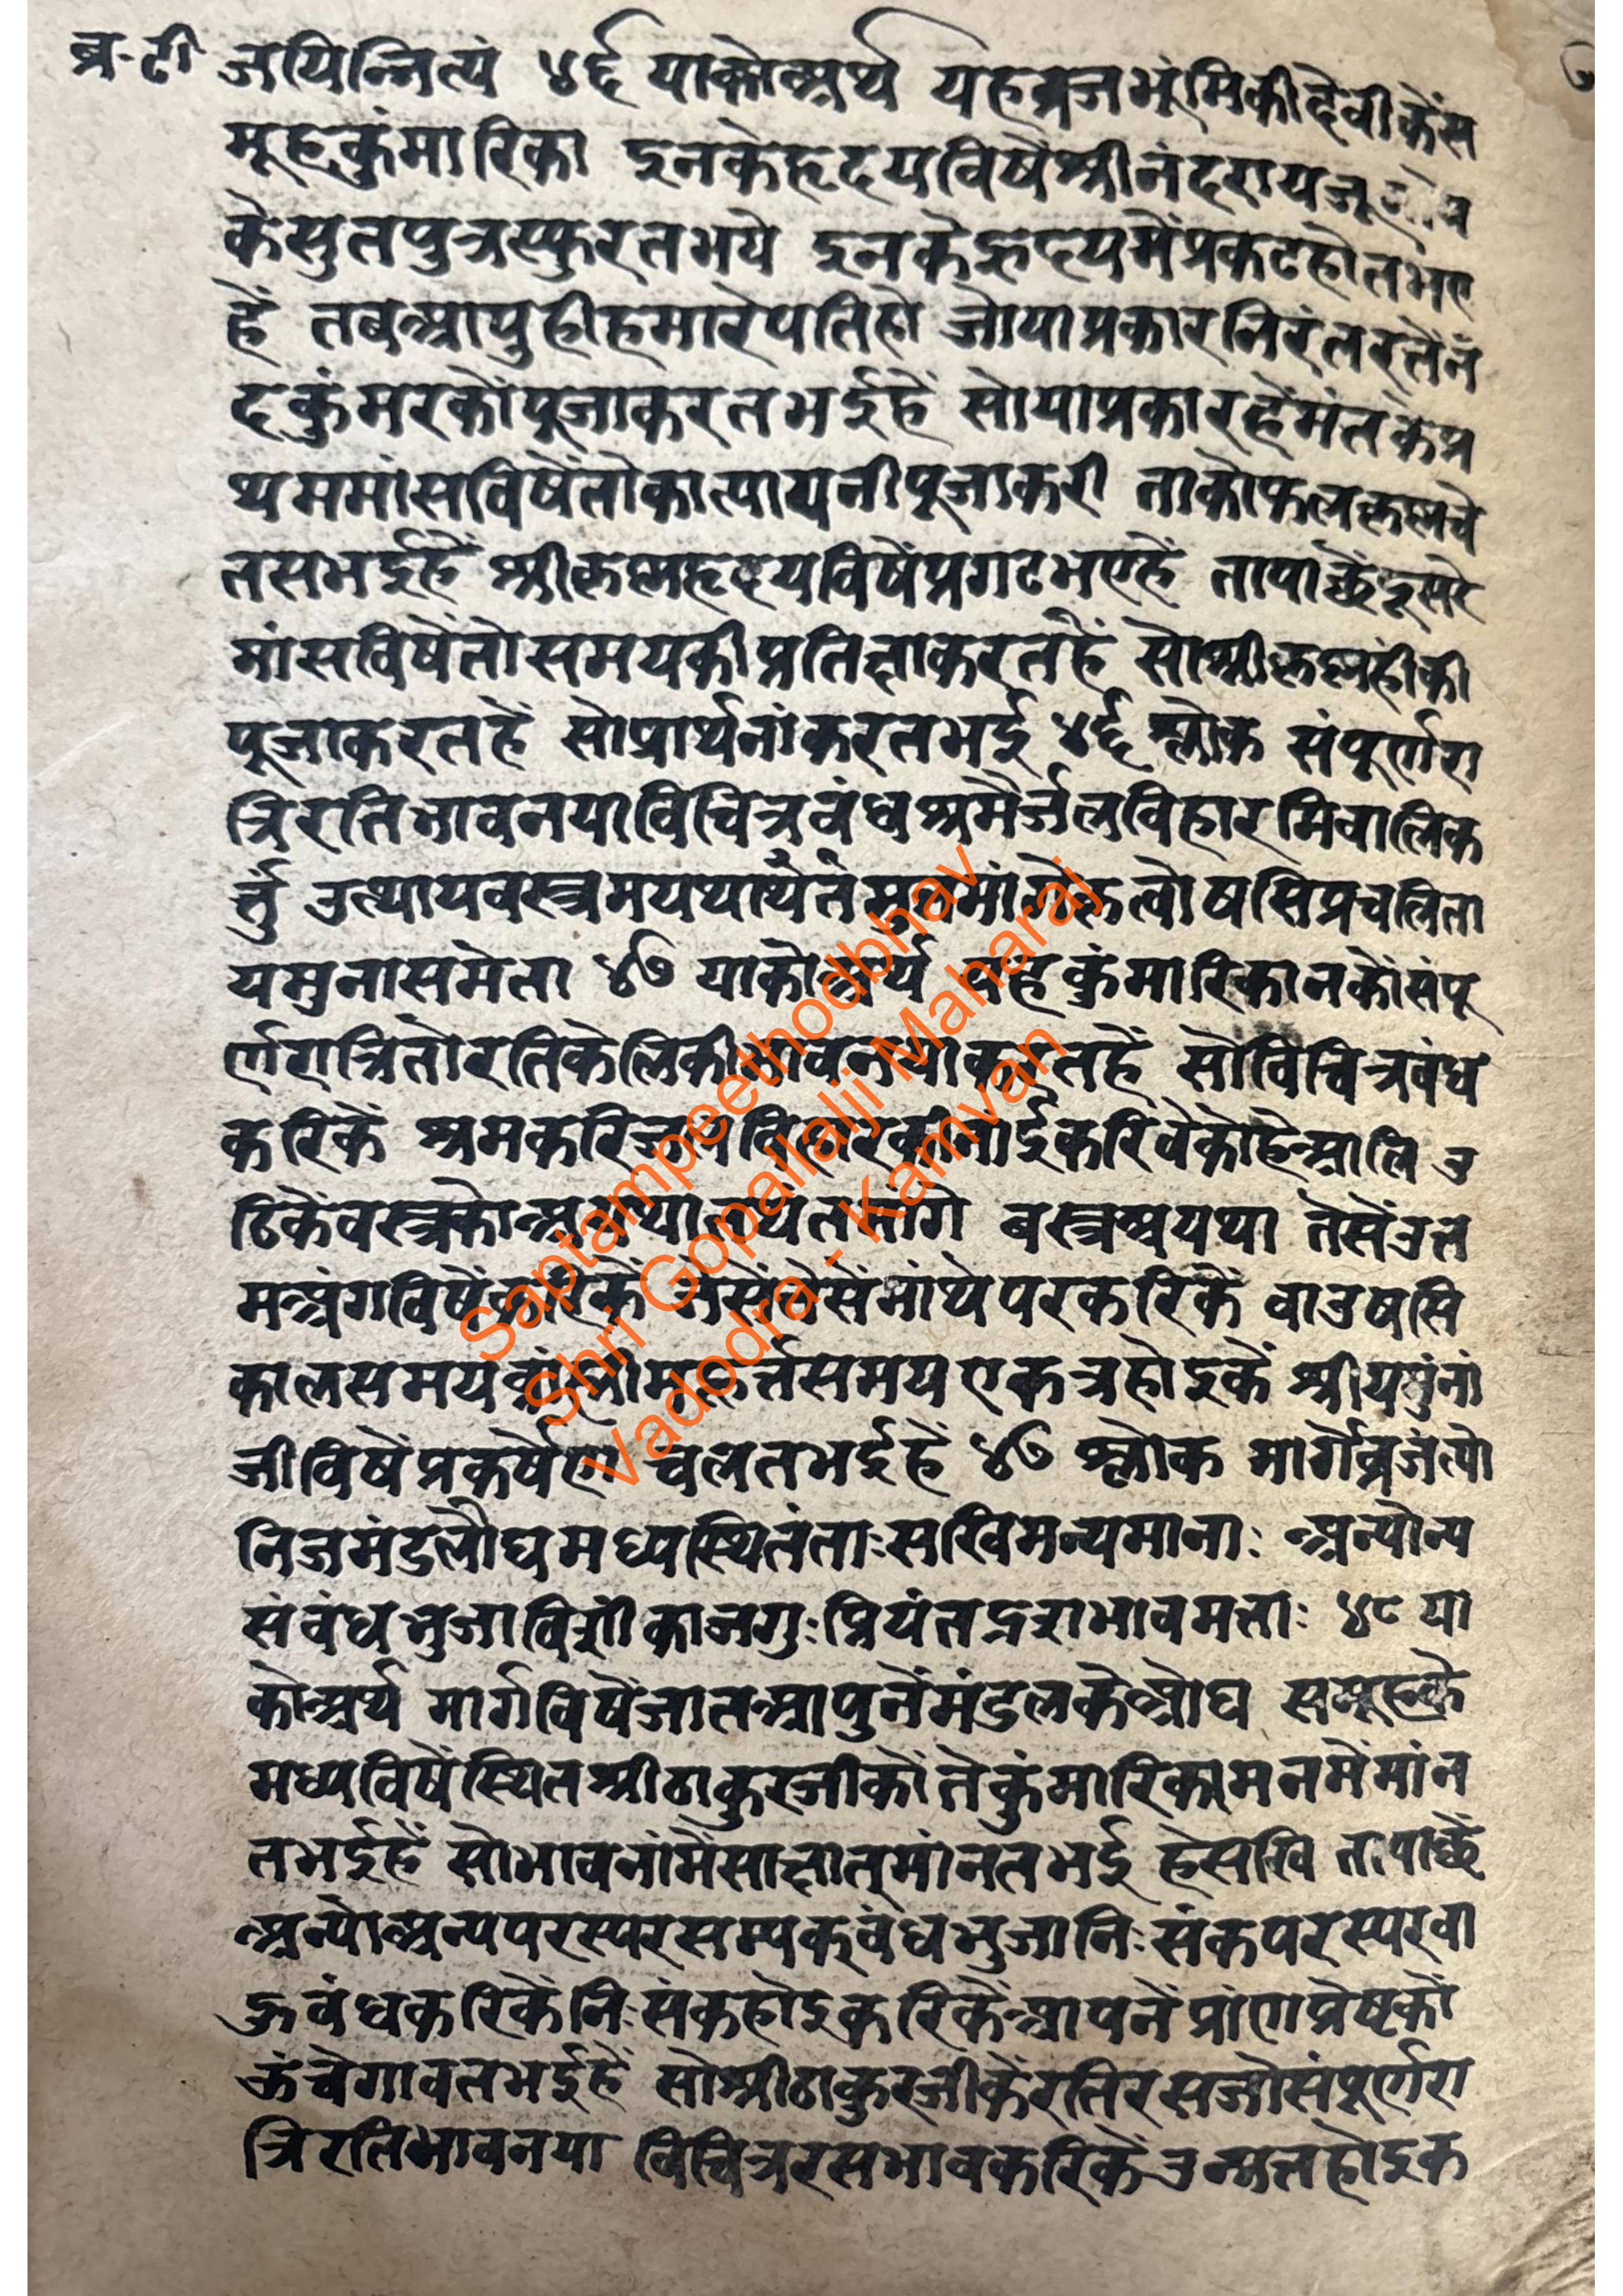 ब्र-टी जयिन्नित्यं ४६ याकोअर्थ यहब्रजभूंमिकीदेवीकेंस
मूहकुंमारिका इनकेहृदयविषेंश्रीनंदरायजू
केसुतपुत्रस्फुरतभये इनकेह्रदयमेंप्रकटहोतभए
हें तबआपुहीहमारेपतिहो जोयाप्रकारनिरंतरतेंनं
दकुंमरकोंपूजाकरतभईहें सोयाप्रकारहेंमंतकेप्र
थममांसविषेंतोकात्यायनीपूजाकरी ताकोफलकृष्णचे
तसभईहें श्रीकृष्णहृदयविषेंप्रगटभएहें तापाछेंदूसरे
मांसविषेंतोसमयकीप्रतिज्ञाकरतहें सोश्रीकृष्णहीकी
पूजाकरतहें सोप्रार्थनांकरतभई ४६ श्लोक संपूर्णरा
त्रिरतिभावनयाविचित्रबंधश्रमैर्जलविहारमिवालिक
र्त्तुं उत्थायवस्त्रमयथार्थेतमुत्तमांगेकृत्वोषसिप्रचलिता
यमुनासमेता ४७ याकोअर्थ यहकुंमारिकानकोंसंपू
र्णरात्रितोरतिकेलिकीभावनयाकरतहें सोविचित्रबंध
करिकें श्रमकरिजलविहारकीनांईकरिवेकोंहेआलि उ
ठिकेंवस्त्रको बस्त्रअयथा तेसेंउत्त
मअंगविषेंकरिकें जेसेंतेसेंमांथेपरकरिकें वाउषसि
कालसमयब्रांह्मीमुहूर्त्तसमयएकत्रहोइकें श्रीयमुंनां
जीविषेंप्रकर्षेण चलतभईहें ४७ श्लोक मार्गेव्रजंत्यो
निजमंडलौघमध्यस्थितंताःसखिमन्यमानाः अन्योन्य
संबंधभुजाविशंकाजगुःप्रियंतद्ररसभावमत्ताः ४८ या
कोअर्थ मार्गविषेंजातआपुनेंमंडलकेओघ समूहके
मध्यविषेंस्थितश्रीठाकुरजीकोंतेकुंमारिकामनमेंमांन
तभईहें सोभावनांमेंसाक्षात्मांनतभई हेसखि तापाछें
अन्योअन्यपरस्परसम्यक्बंधभुजानिःसंकपरस्परवा
हूबंधकरिकेंनिःसंकहोइकरिकेंआपनेंप्रांणप्रेष्टकों
ऊंचेगावतभईहें सोश्रीठाकुरजीकेंरतिरसजोसंपूर्णरा
त्रिरतिभावनया विचित्ररसभावकरिकेंउन्मत्तहोइक
Saptampeethodbhav
Shri Gopallalji Maharaj
Vadodra - Kamvan